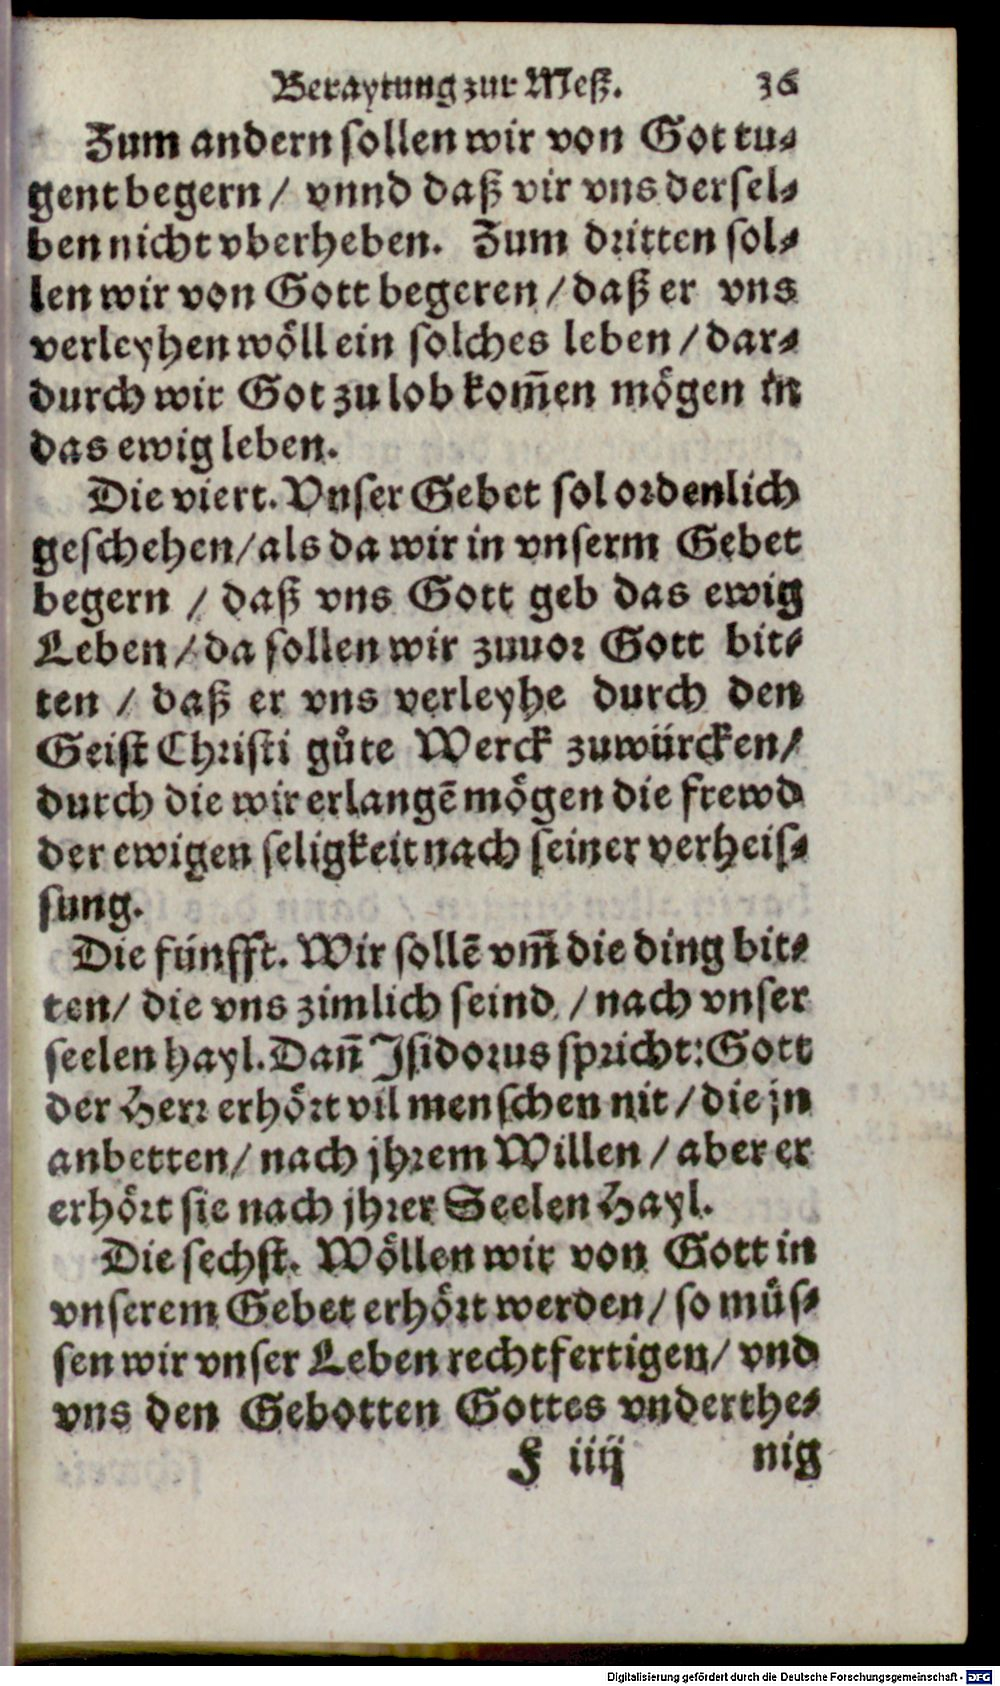 Beraytung zur Meß. 36
Zum andern sollen wir von Got tu⸗
gent begern / vnnd daß vir vns dersel⸗
ben nicht vberheben. Zum dritten sol⸗
len wir von Gott begeren / daß er vns
verleyhen wöll ein solches leben / dar⸗
durch wir Got zu lob kom̄en mögen in
das ewig leben.
Die viert. Vnser Gebet sol ordenlich
geschehen / als da wir in vnserm Gebet
begern / daß vns Gott geb das ewig
Leben / da sollen wir zuuor Gott bit⸗
ten / daß er vns verleyhe durch den
Geist Christi gůte Werck zuwürcken /
durch die wir erlangẽ mögen die frewd
der ewigen seligkeit nach seiner verheis⸗
sung.
Die fünfft. Wir sollẽ vm̃ die ding bit⸗
ten / die vns zimlich seind / nach vnser
seelen hayl. Dañ Isidorus spricht: Gott
der Herr erhört vil menschen nit / die jn
anbetten / nach jhrem Willen / aber er
erhört sie nach jhrer Seelen Hayl.
Die sechst. Wöllen wir von Gott in
vnserem Gebet erhört werden / so müs⸗
sen wir vnser Leben rechtfertigen / vnd
vns den Gebotten Gottes vnderthe⸗
F iiij nig
Digitalisierung gefördert durch die Deutsche Forschungsgemeinschaft - DFG